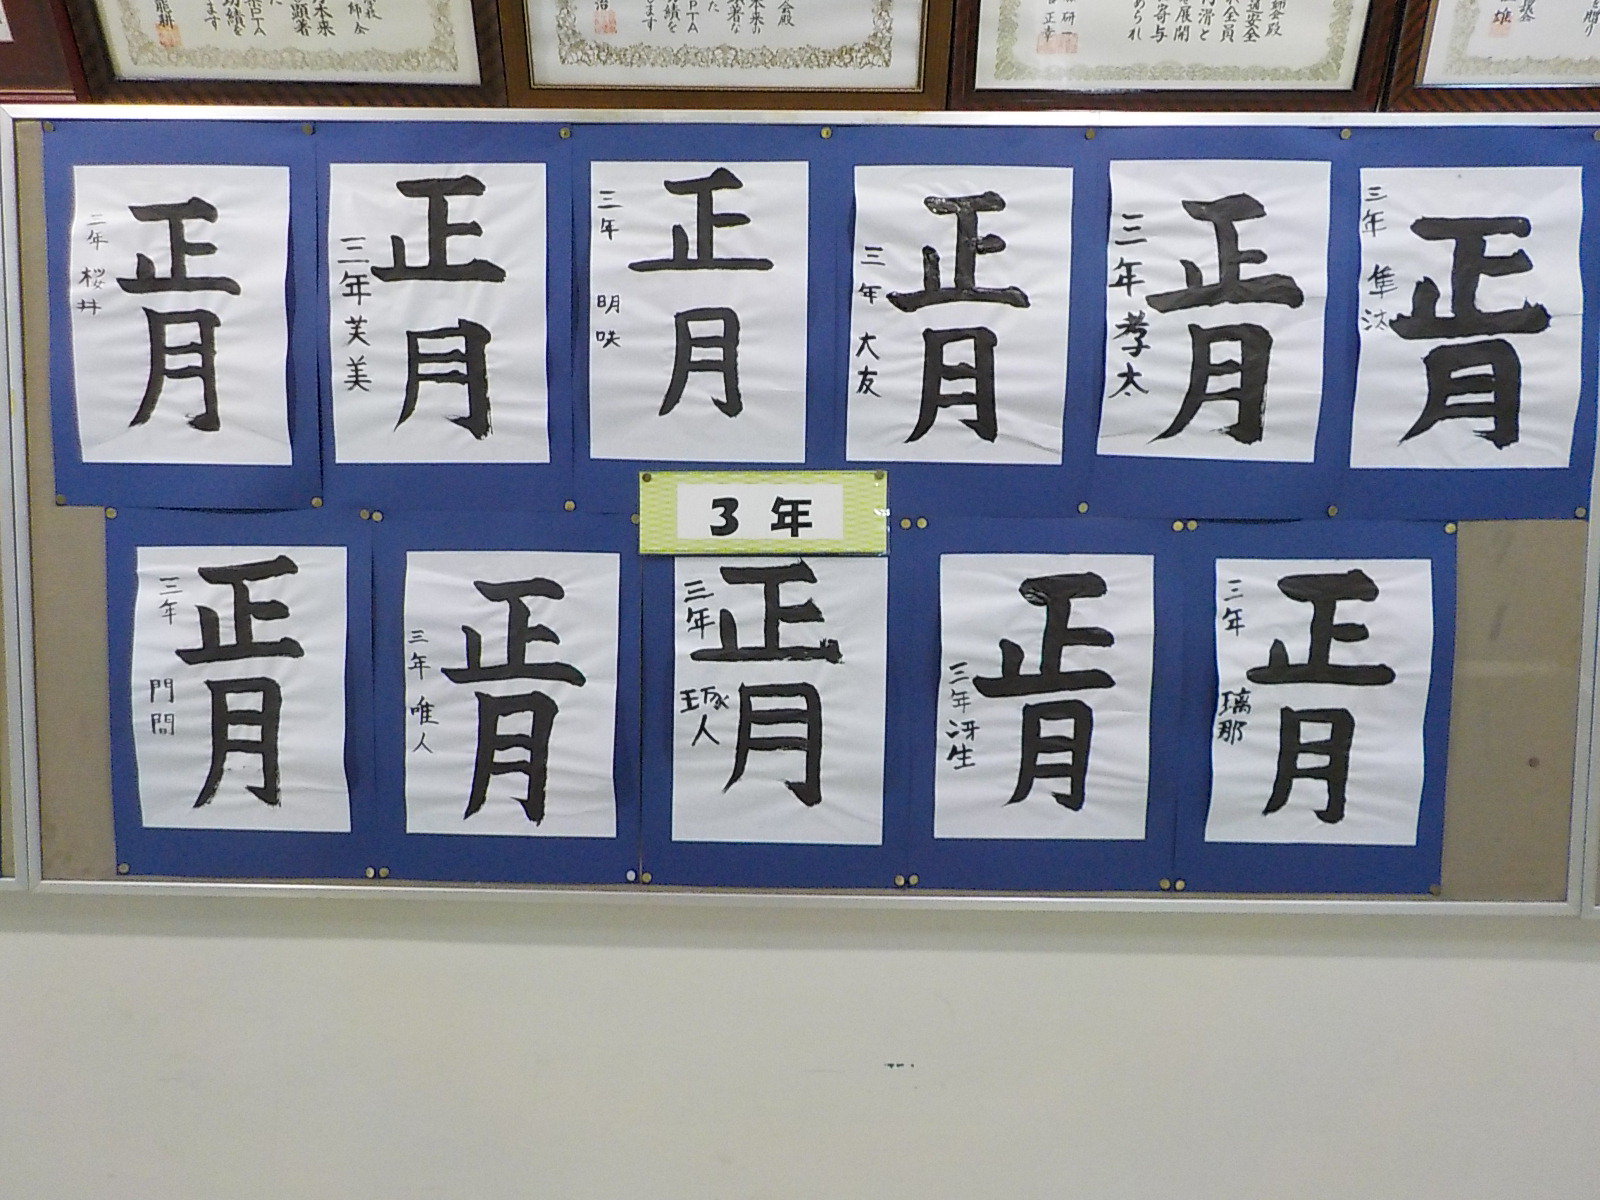 正月
三年 桜井
正月
三年 芙美
正月
三年 明咲
正月
三年 大友
正月
三年 孝太
正月
三年 隼汰
3年
正月
三年 門間
正月
三年 唯人
正月
三年 琢人
正月
三年 冴生
正月
三年 璃那